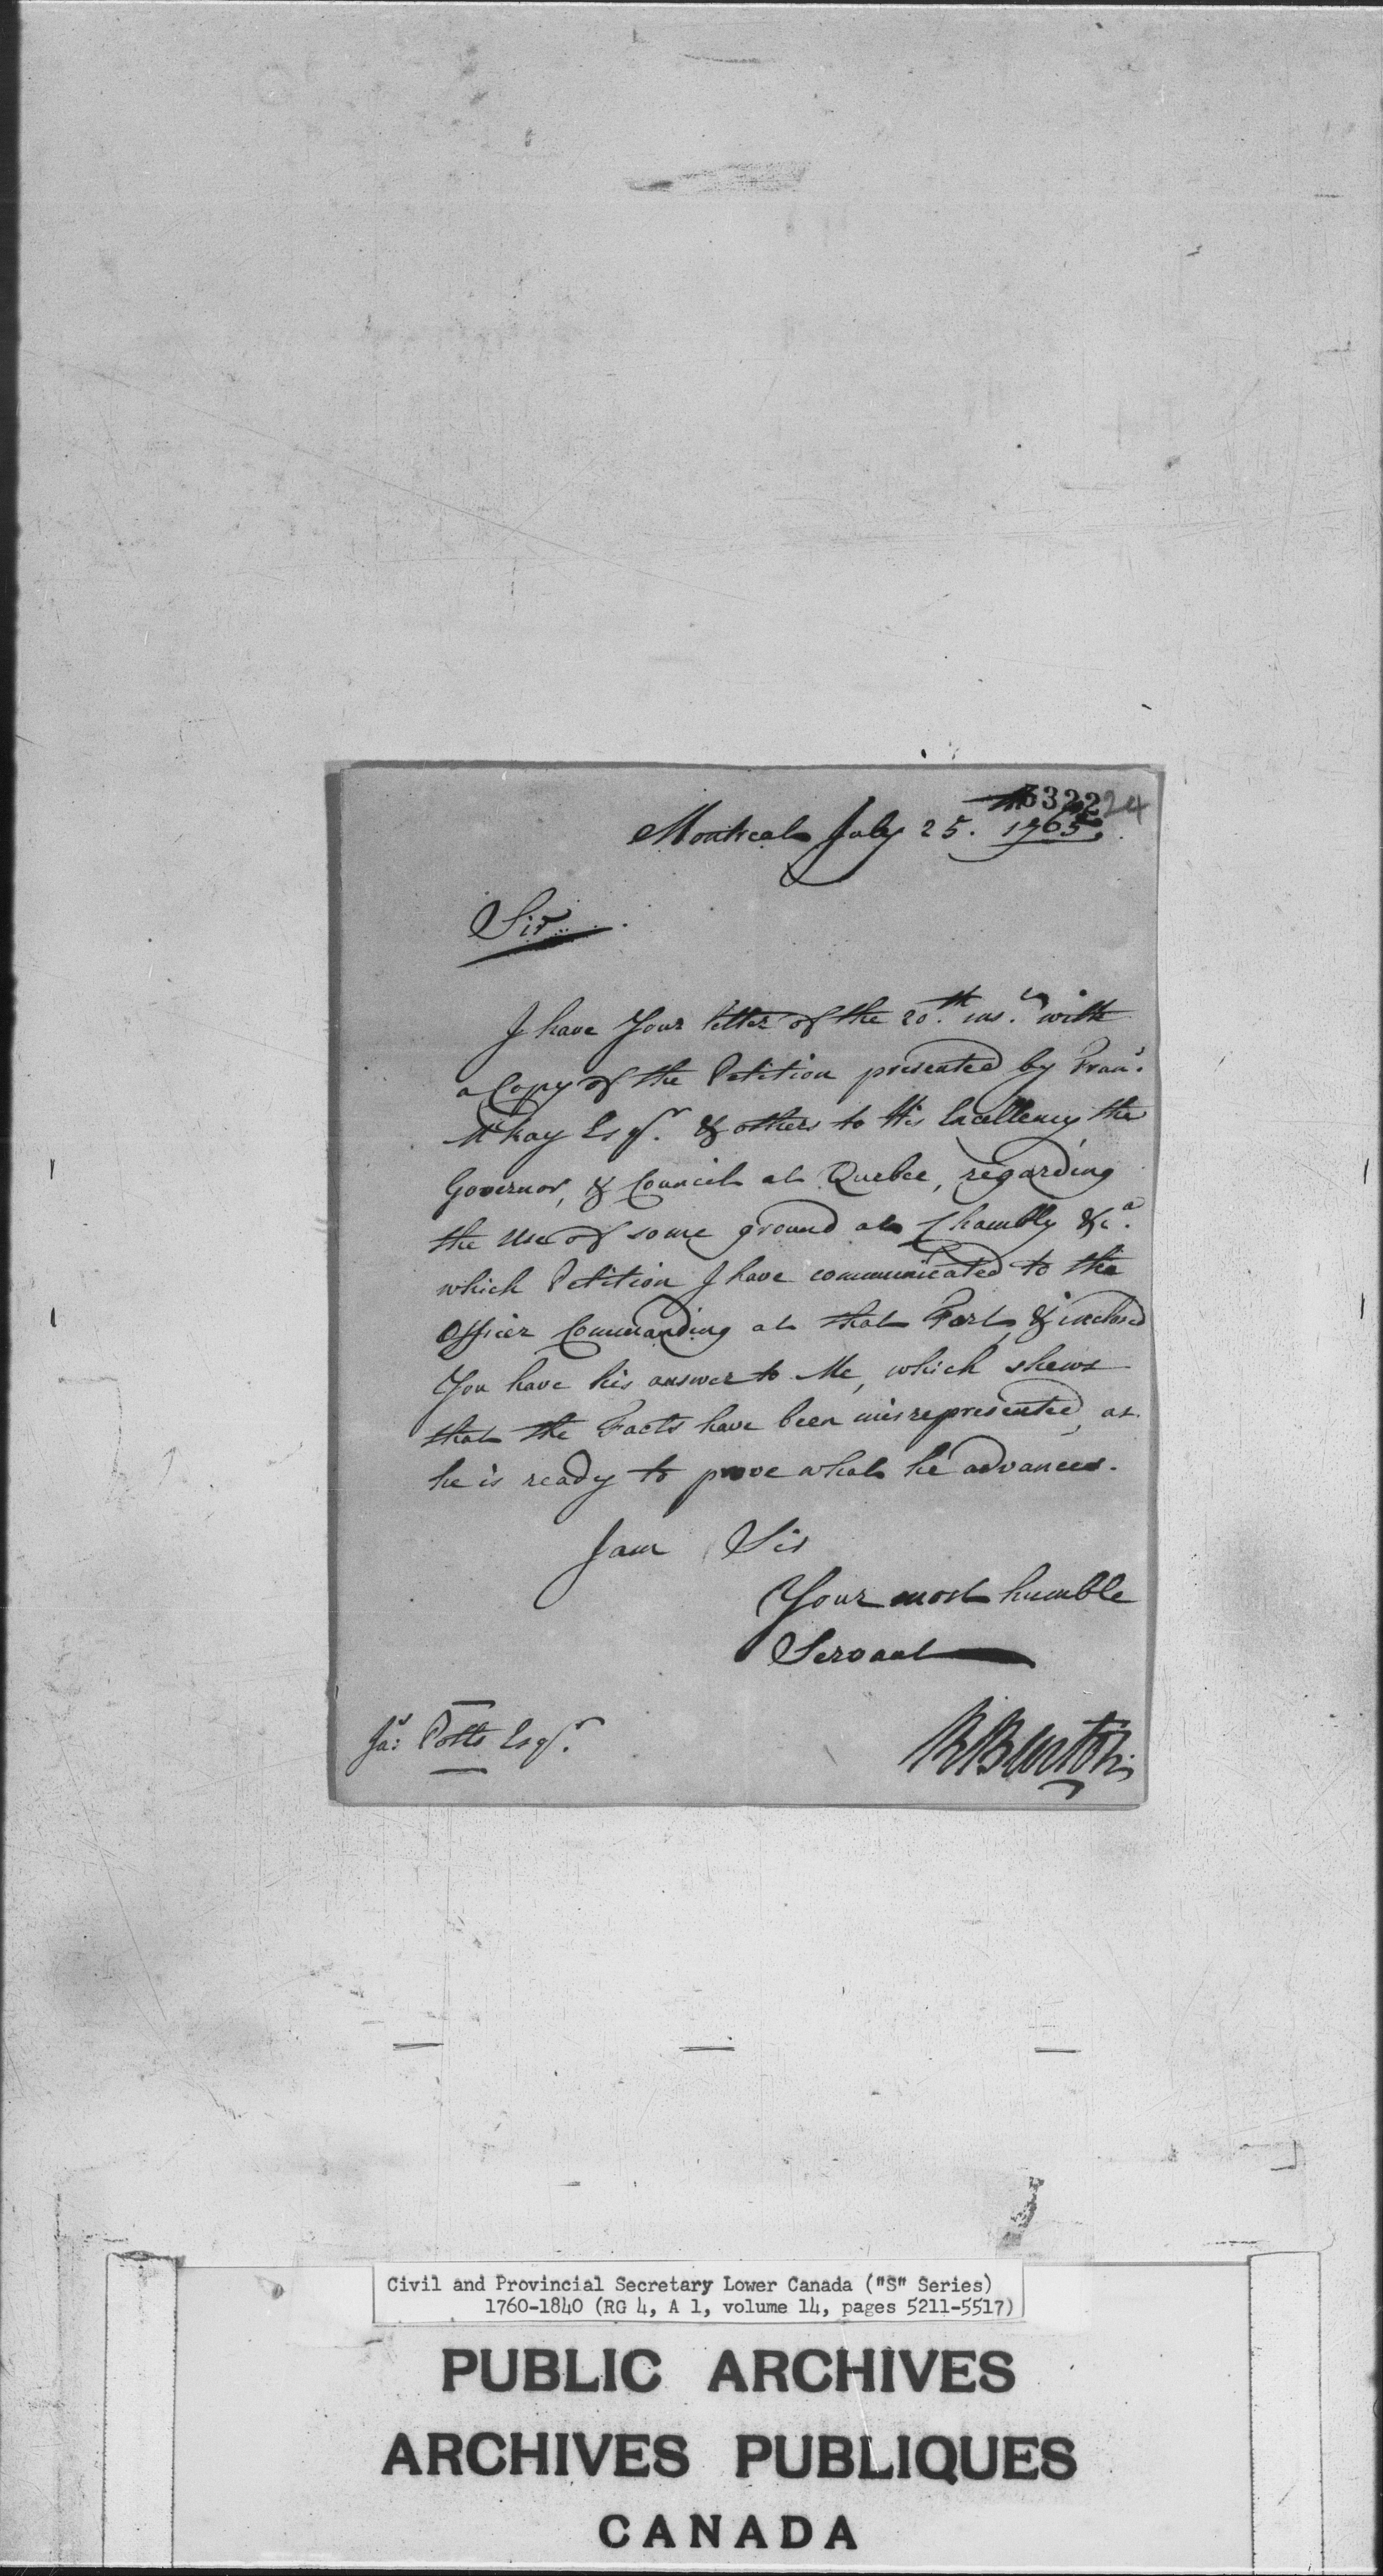 5322 24
Montreal July 25. 1765.
Sir
I have Your letter of the 20.th ins.t with
a Copy of the Petition presented by Fran.s
McKay Esqr. & others to His Excellency the
Governor, & Council at Quebec, regarding
the Use of some ground at Chambly &c.a
which Petition I have communicated to the
Officer Commanding at that Fort, & inclosed
You have his answer to Me, which shews
that the Facts have been misrepresented, as
he is ready to prove what he advances.
I am Sir
Your most humble
Servant
Ja.s Potts Esqr.
R Burton
Civil and Provincial Secretary Lower Canada ("S" Series)
1760-1840 (RG 4, A 1, volume 14, pages 5211-5517)
PUBLIC ARCHIVES
ARCHIVES PUBLIQUES
CANADA